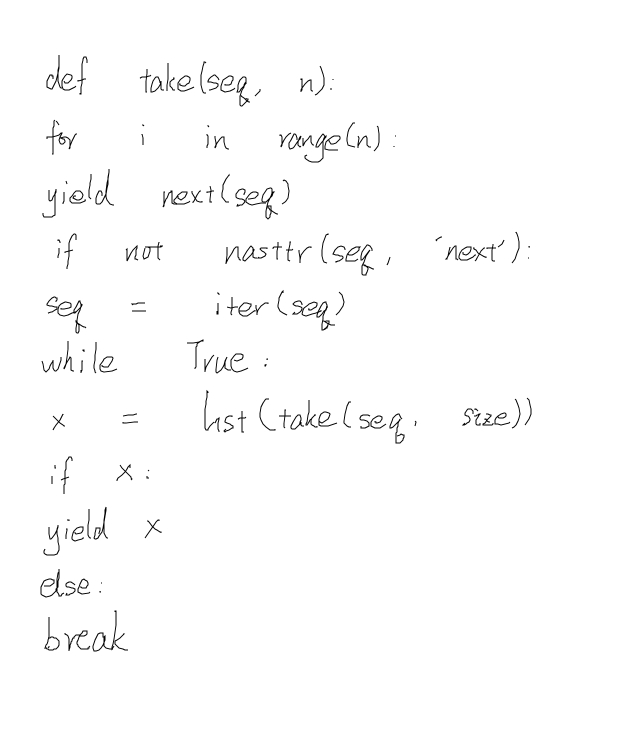 def take(seq, n):
for i in range(n):
yield next(seq)
if not hasttr(seq, 'next'):
seq = iter(seq)
while True:
x = list(take(seq, size))
if x:
yield x
else:
break